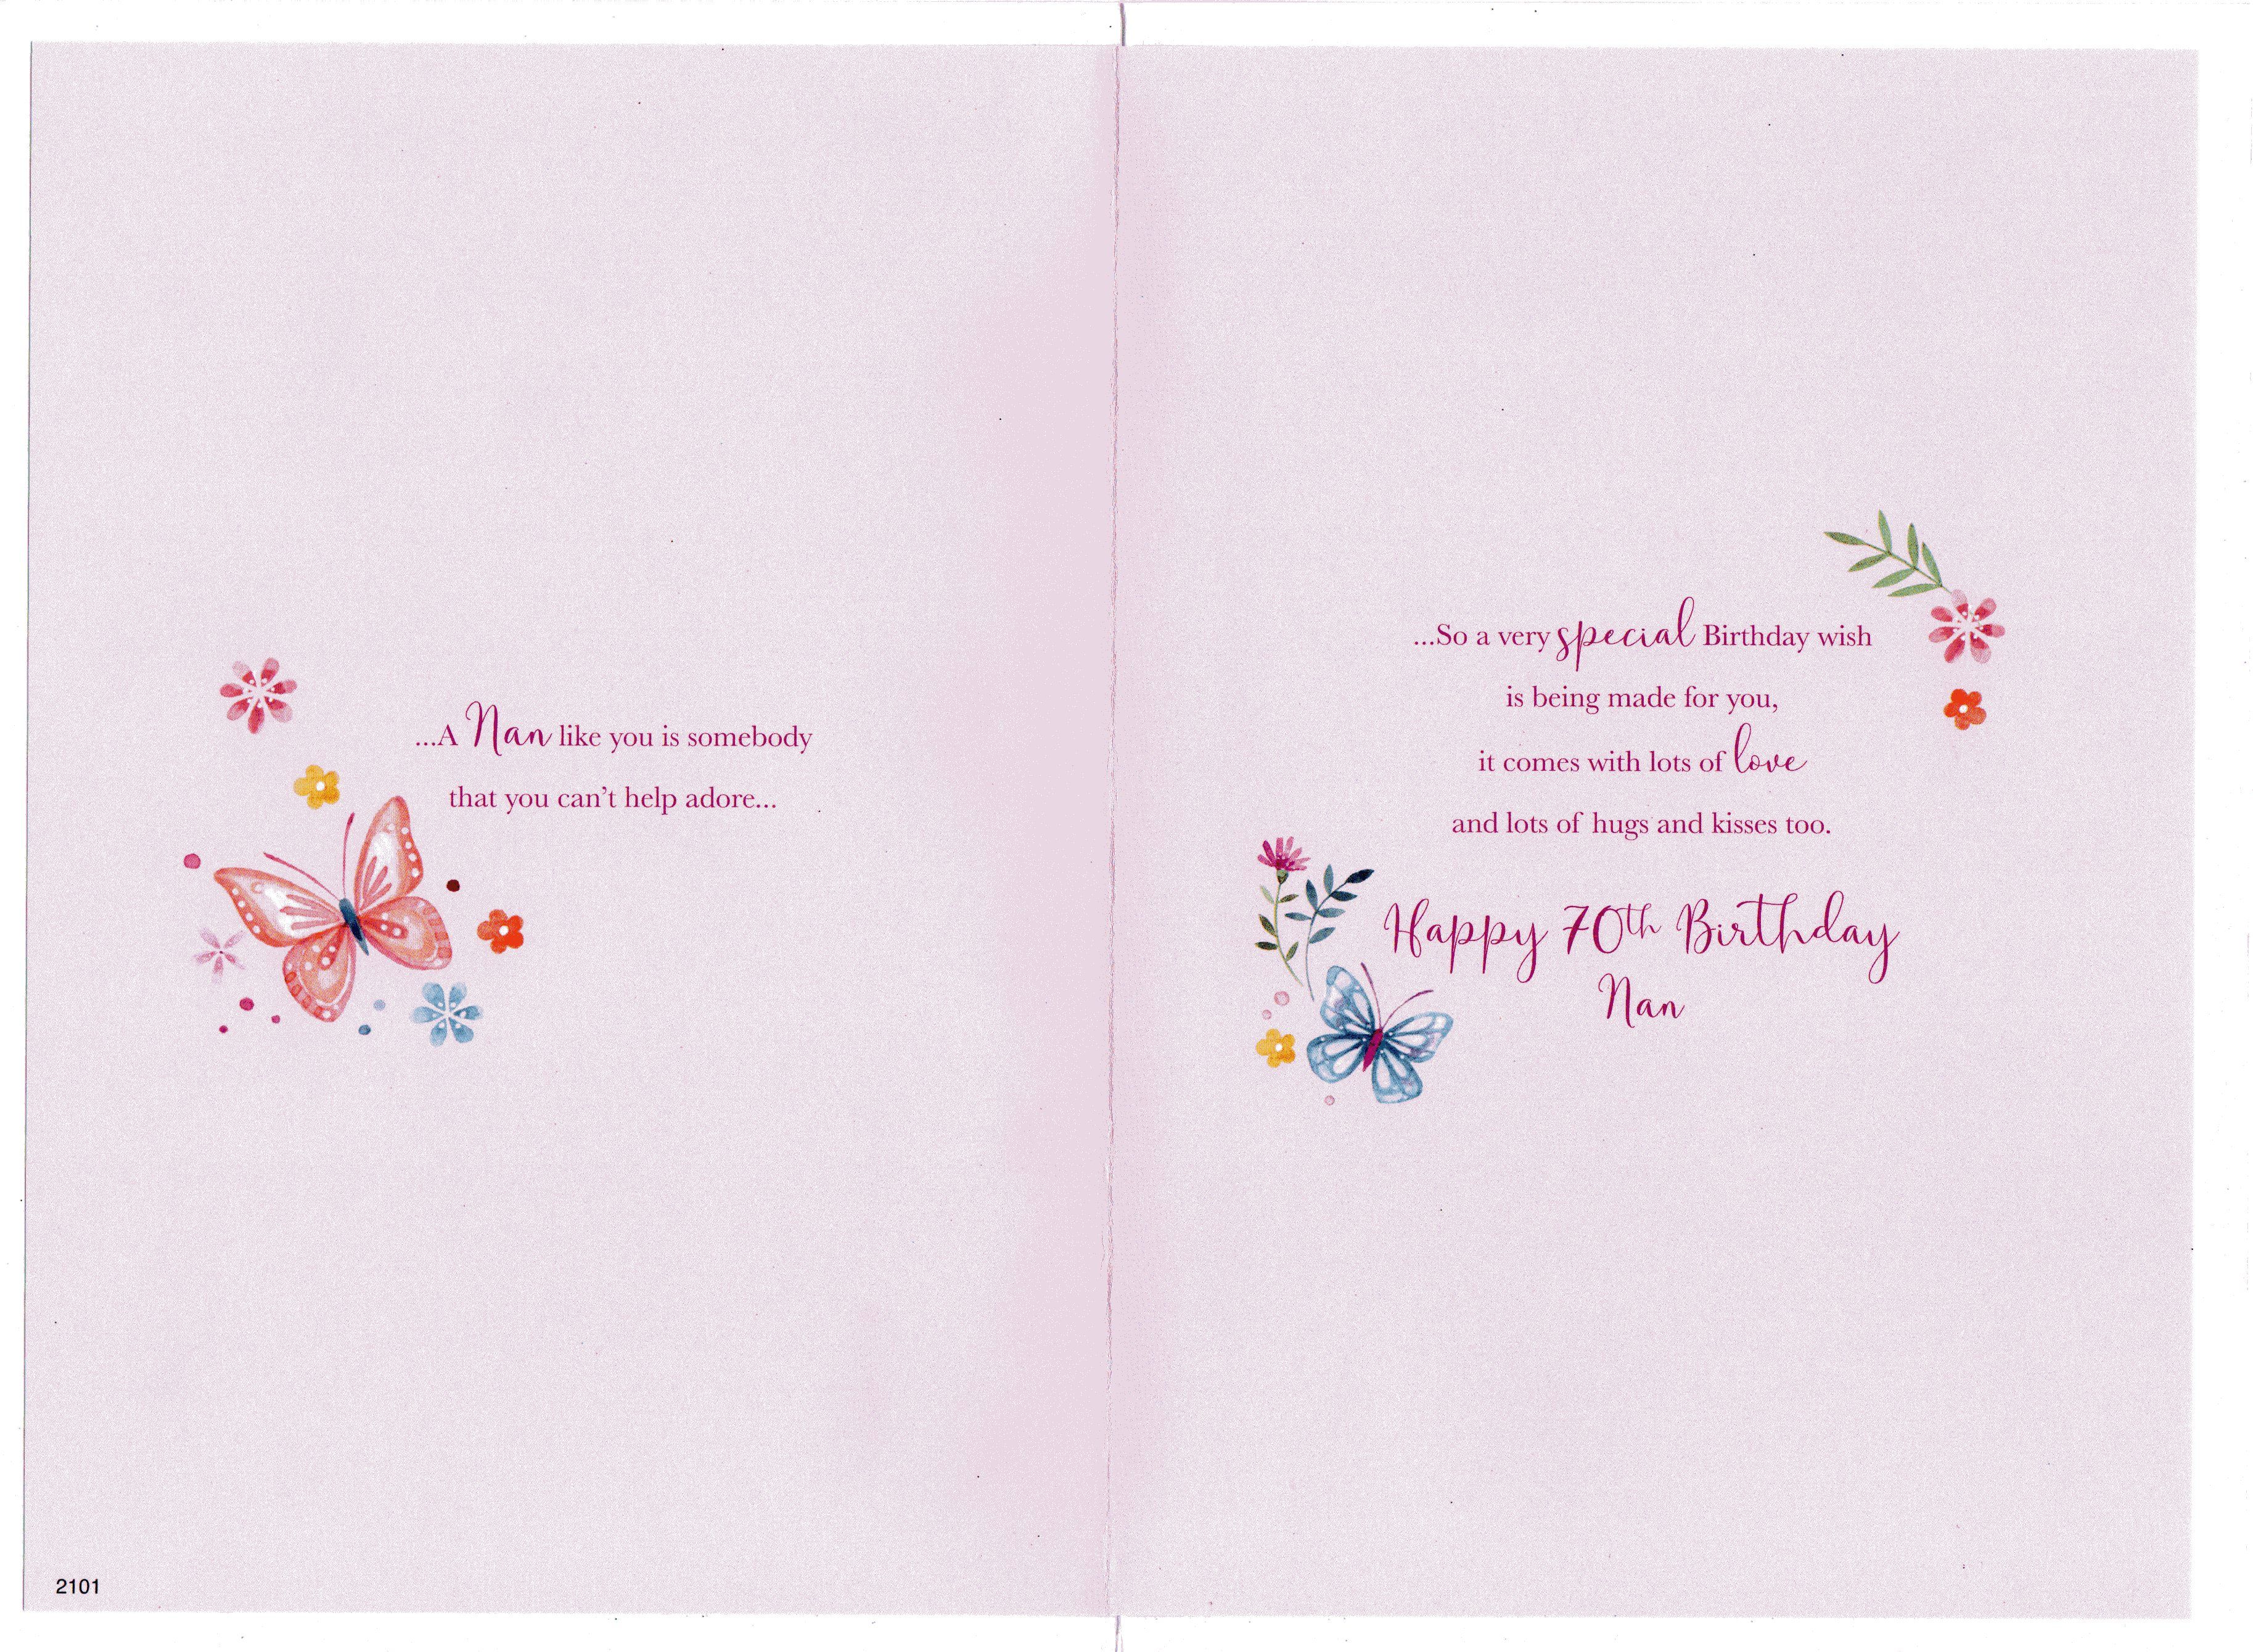 ...A Nan like you is somebody
that you can't help adore...
2101
...So a very special Birthday wish
is being made for you,
it comes with lots of love
and lots of hugs and kisses too.
Happy 70th Birthday
Nan